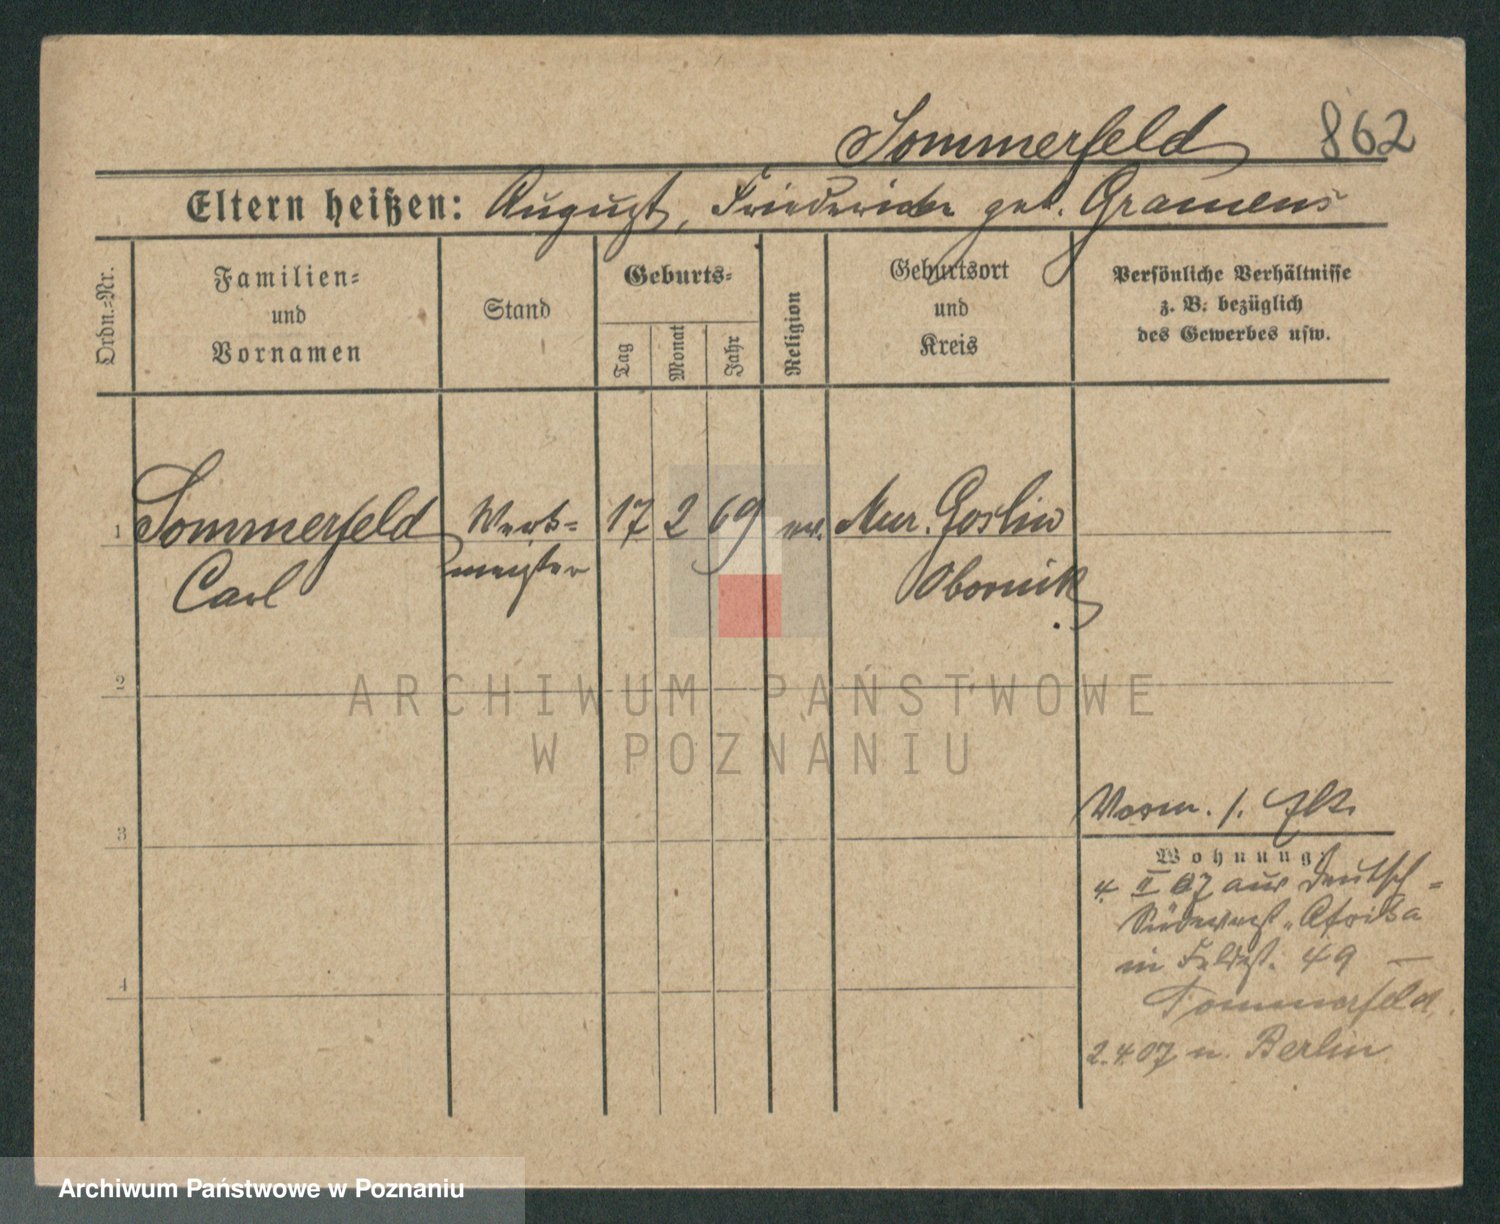 Sommerfeld 862
Eltern heißen: August, Friederike geb. Gramens
Ordn.-Nr.
Familien-
und
Vornamen
Stand
Geburts-
Tag
Monat
Jahr
Religion
Geburtsort
und
Kreis
Persönliche Verhältnisse
z. B. bezüglich
des Gewerbes usw.
1 Sommerfeld Werk- 17 2 69 ev. Mur. Goslin
Carl meister Obornik
2
ARCHIWUM PAŃSTWOWE
W POZNANIU
3
4
Vorm. f.
Wohnung:
4. II 07 aus Deutsch-
Südwest-Afrika
in 49 —
Sommerfeld.
2.4.07 n. Berlin
Archiwum Państwowe w Poznaniu